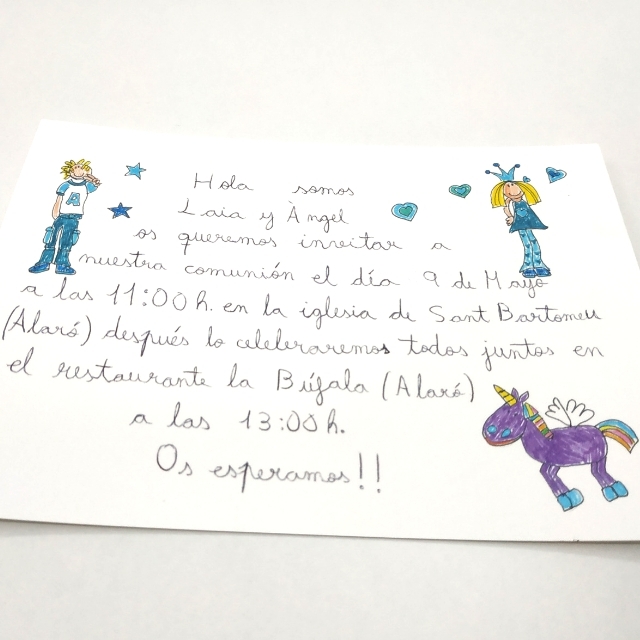 Hola somos
Laia y Àngel
os queremos invitar a
nuestra comunión el día 9 de Mayo
a las 11:00 h. en la iglesia de Sant Bartomeu
(Alaró) después lo celebraremos todos juntos en
el restaurante la Búfala (Alaró)
a las 13:00 h.
Os esperamos!!
A